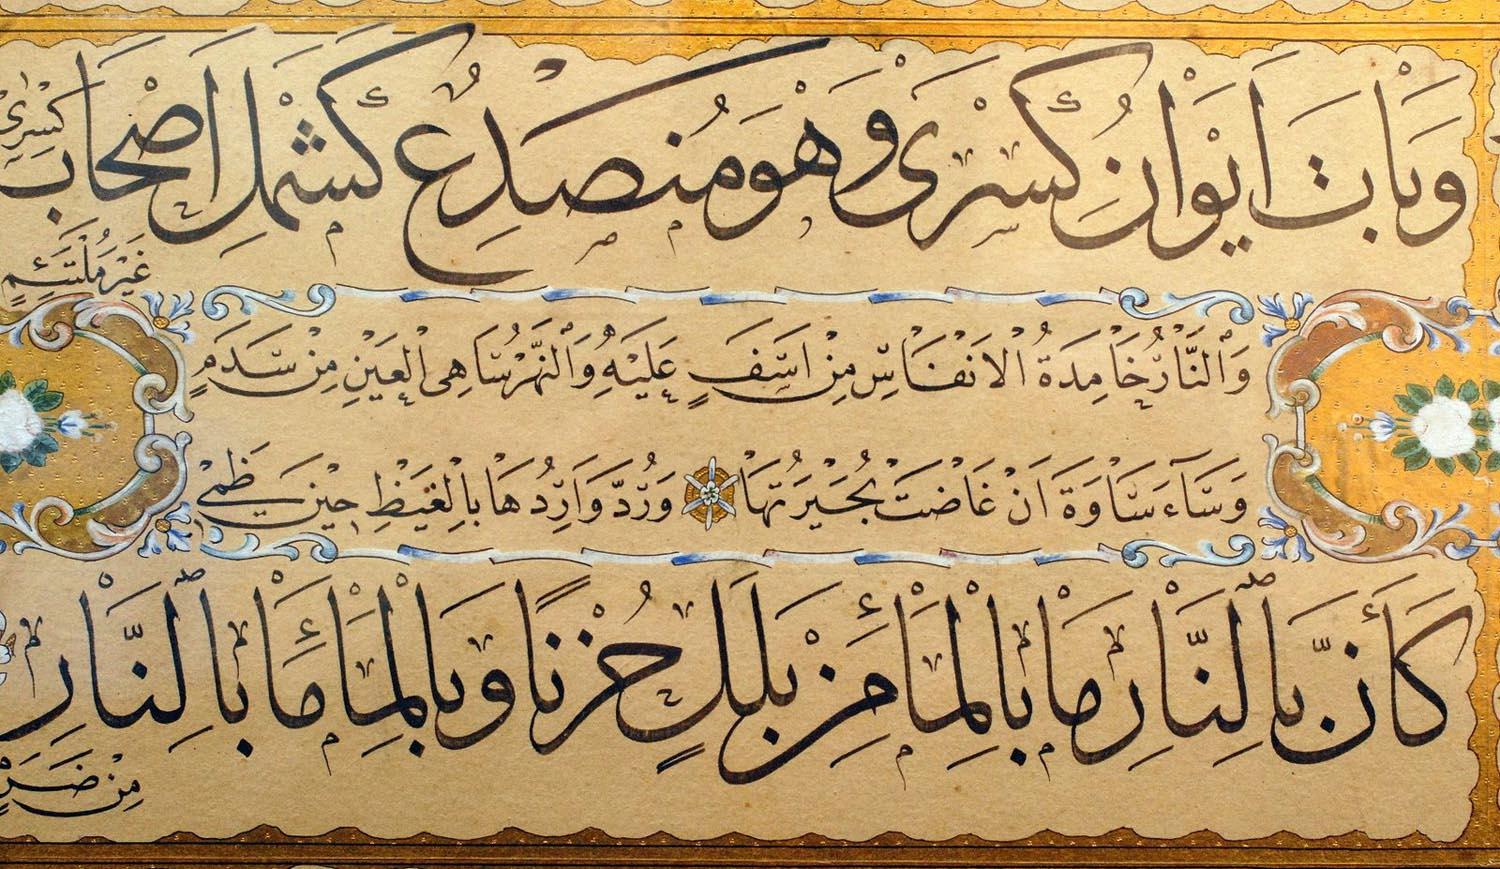 وَبَاتَ اِيوَانُ كِسْرٰى وَهُوَ مُنْصَدِعٌ كَشَمْلِ اَصْحَابِ كِسْرٰى
غَيْرَ مُلْتَئِمِ
وَالنَّارُ خَامِدَةُ الْاَنْفَاسِ مِنْ اَسَفٍ عَلَيْهِ وَالنَّهْرُ سَاهِى الْعَيْنِ مِنْ سَدَمٍ
وَسَآءَ سَاوَةَ اَنْ غَاضَتْ بُحَيْرَتُهَا وَرُدَّ وَارِدُهَا بِالْغَيْظِ حِيْنَ ظَمِى
كَأَنَّ بِالنَّارِ مَا بِالْمَاءِ مِنْ بَلَلٍ حُزْنًا وَبِالْمَاءِ مَا بِالنَّارِ
مِنْ ضَرَمٍ